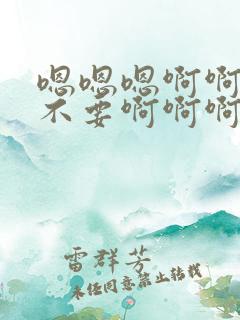 嗯嗯嗯啊啊
不要啊啊啊
雷群芳
未经同意禁止转载